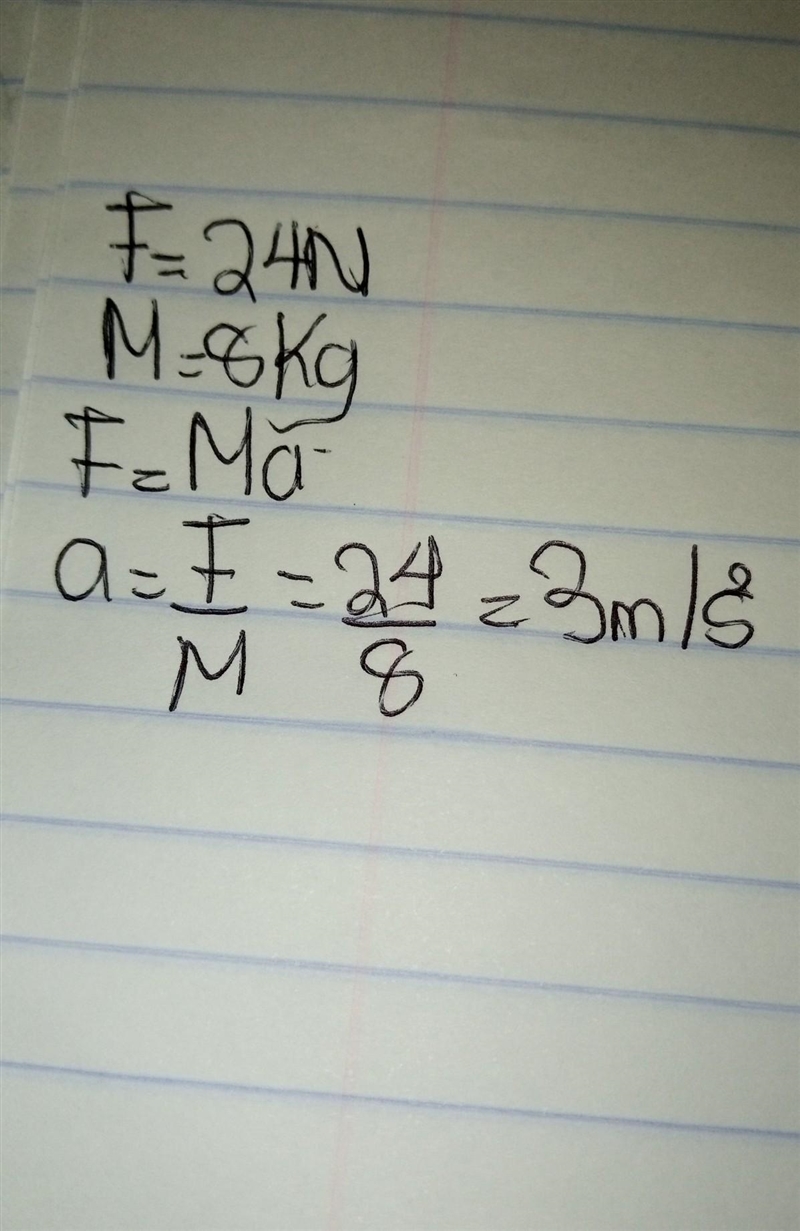 F = 24N
M = 8Kg
F = Ma
a = F/M = 24/8 = 3m/s²